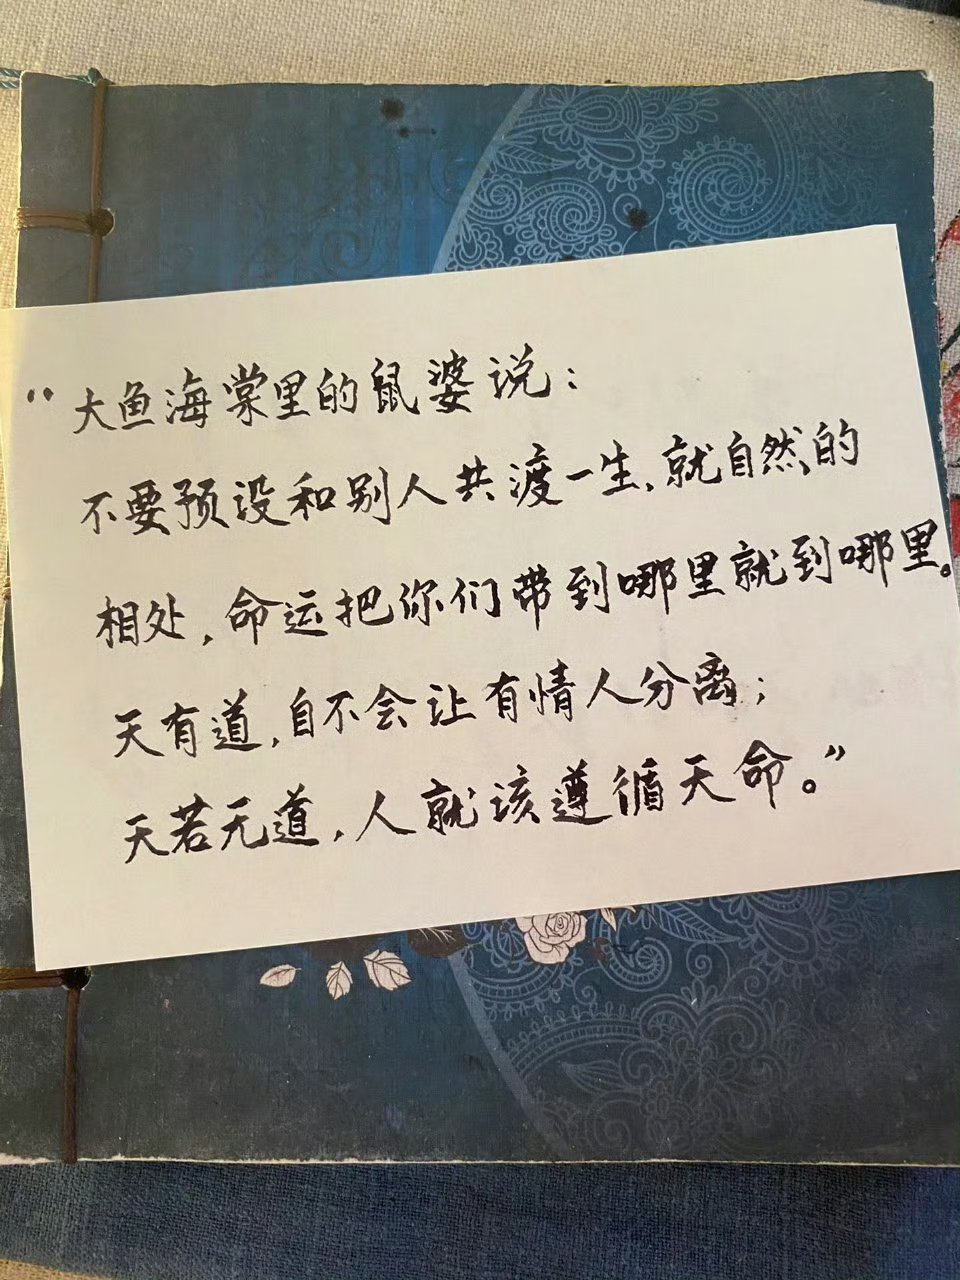 “大鱼海棠里的鼠婆说：
不要预设和别人共渡一生,就自然的
相处,命运把你们带到哪里就到哪里。
天有道,自不会让有情人分离;
天若无道,人就该遵循天命。”